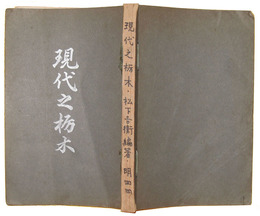 現代之栃木
現代之栃木・松下幸衛編著・明四四